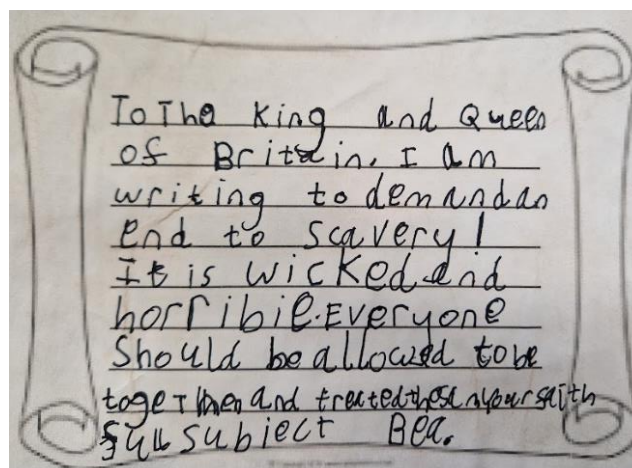 To The King and Queen
of Britain. I am
writing to demand an
end to scavery!
It is wicked and
horribie. Everyone
Should be allowed to be
together and treated the sam your faith
full subject Bea.